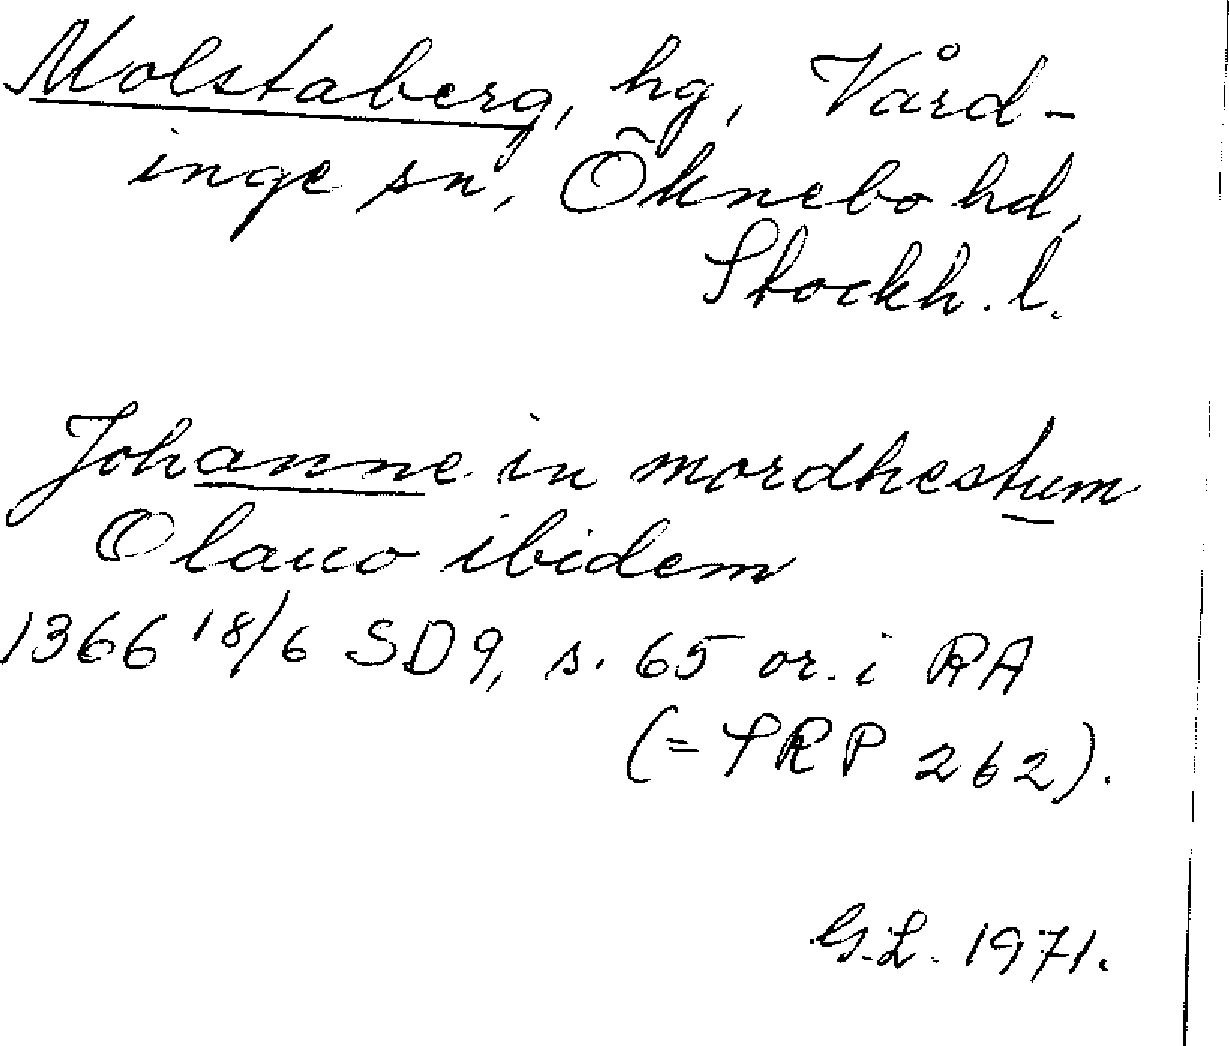 Molstaberg, hg, Vård-
inge sn, Öknebo hd,
Stockh. l.
Johanne in mordhestum
Olauo ibidem
1366 18/6 SD 9, s. 65 or. i RA
(= SRP 262).
G.L. 1971.